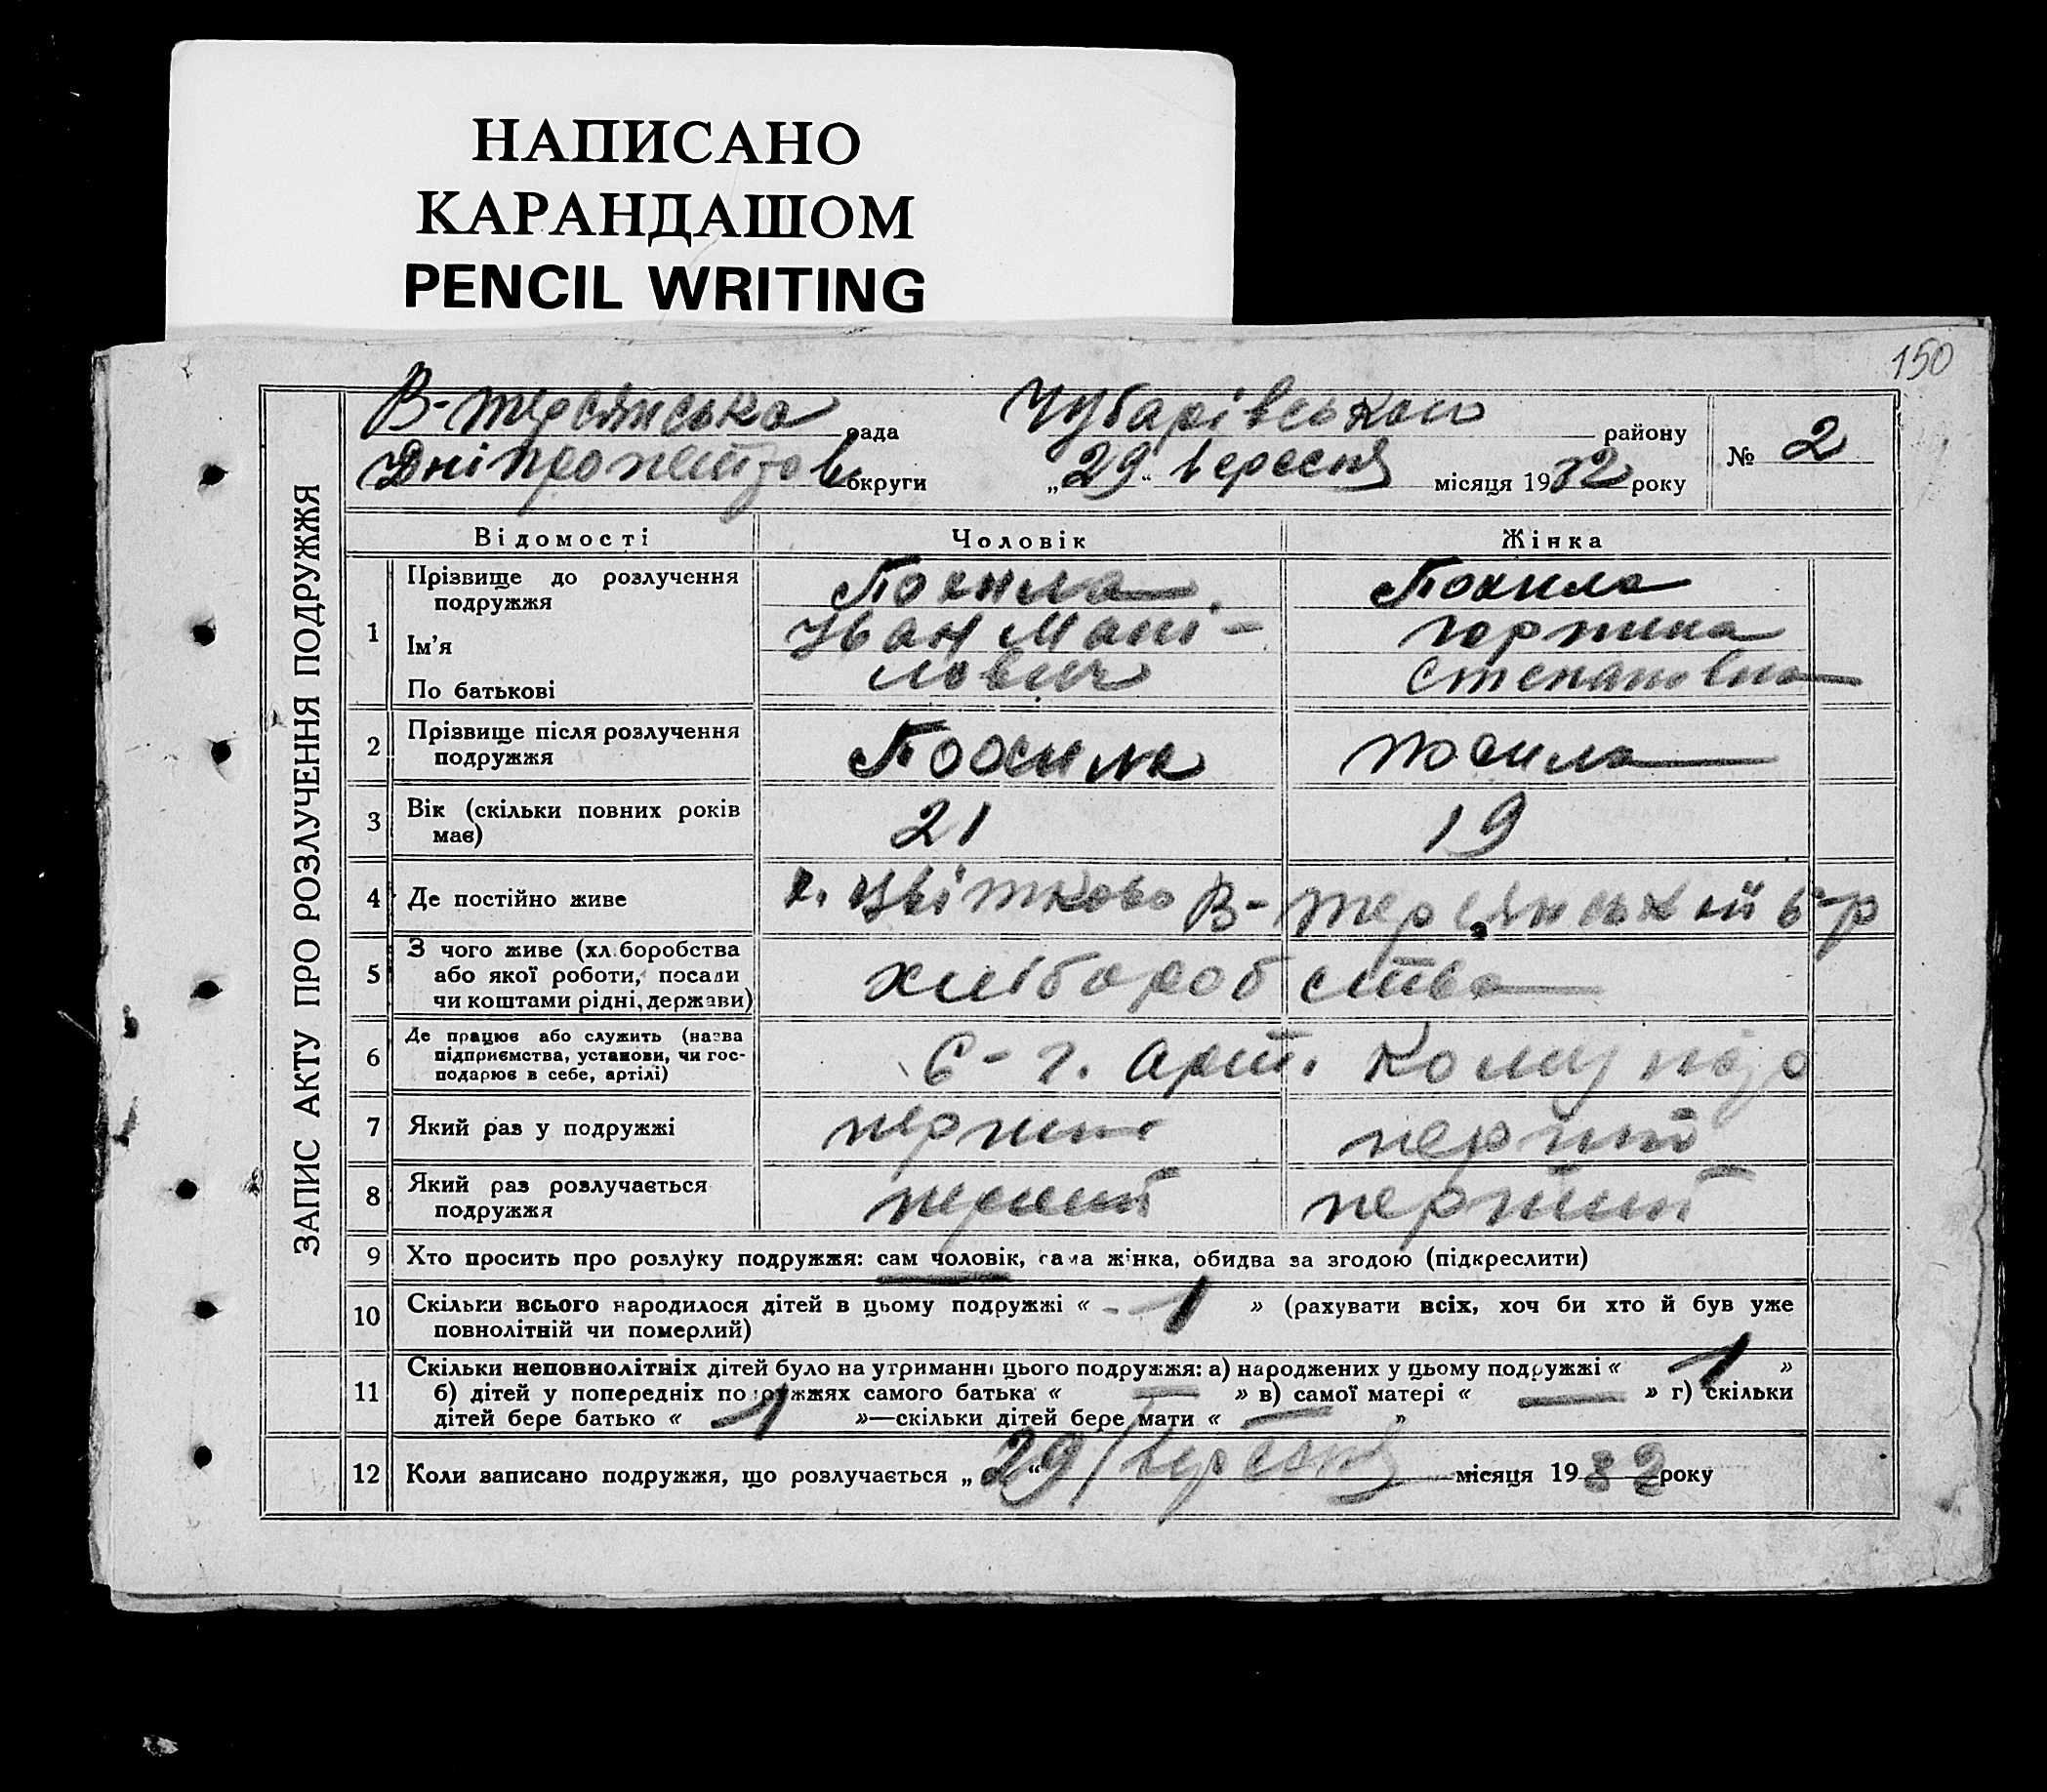 НАПИСАНО
КАРАНДАШОМ
PENCIL WRITING
150
ЗАПИС АКТУ ПРО РОЗЛУЧЕННЯ ПОДРУЖЖЯ
В-терсянська рада Чубарівського району № 2
Дніпропетров округи „29“ вересня місяця 1932 року
Відомості Чоловік Жінка
1 Прізвище до розлучення Похила Похила
подружжя
Ім'я Іван Мані-
По батькові лович Степановна
2 Прізвище після розлучення Похила
подружжя
3 Вік (скільки повних років 21 19
має)
4 Де постійно живе х. Цвітково В-терсянській с-р
5 З чого живе (хліборобства хліборобства
або якої роботи, посади
чи коштами рідні, держави)
6 Де працює або служить (назва С-г. арт.
підприємства, установи, чи гос-
подарює в себе, артілі)
7 Який раз у подружжі перший перший
8 Який раз розлучається перший перший
подружжя
9 Хто просить про розлуку подружжя: сам чоловік, сама жінка, обидва за згодою (підкреслити)
10 Скільки всього народилося дітей в цьому подружжі « - 1 » (рахувати всіх, хоч би хто й був уже
повнолітній чи померлий)
11 Скільки неповнолітніх дітей було на утриманні цього подружжя: а) народжених у цьому подружжі « 1 »
б) дітей у попередніх подружжях самого батька « — » в) самої матері « — » г) скільки
дітей бере батько « 1 »—скільки дітей бере мати « — »
12 Коли записано подружжя, що розлучається „29“ вересня місяця 1932 року